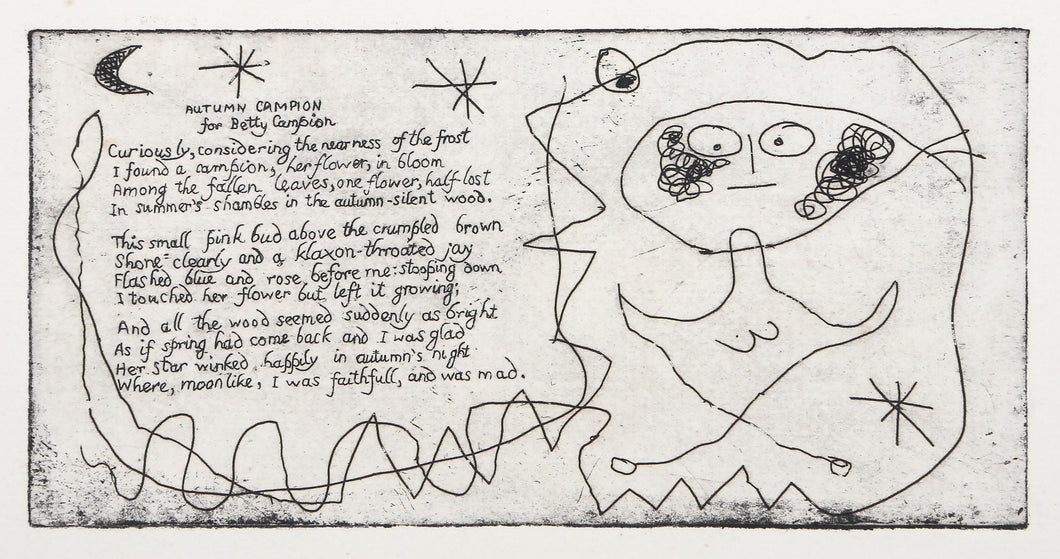 AUTUMN CAMPION
for Betty Campion
Curiously, considering the nearness of the frost
I found a campion, her flower, in bloom
Among the fallen leaves, one flower, half lost
In summer's shambles in the autumn-silent wood.
This small pink bud above the crumpled brown
Shone clearly and a klaxon-throated jay
Flashed blue and rose before me: stooping down
I touched her flower but left it growing;
And all the wood seemed suddenly as bright
As if spring had come back and I was glad
Her star winked happily in autumn's night
Where, moonlike, I was faithfull, and was mad.